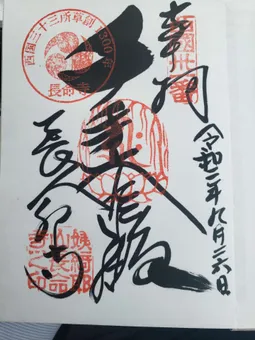 奉拝
西国三十一番
令和二年九月二六日
西国三十三所草創1300年
長命寺
千手大悲殿
長命寺
姨綺耶山長命寺之印